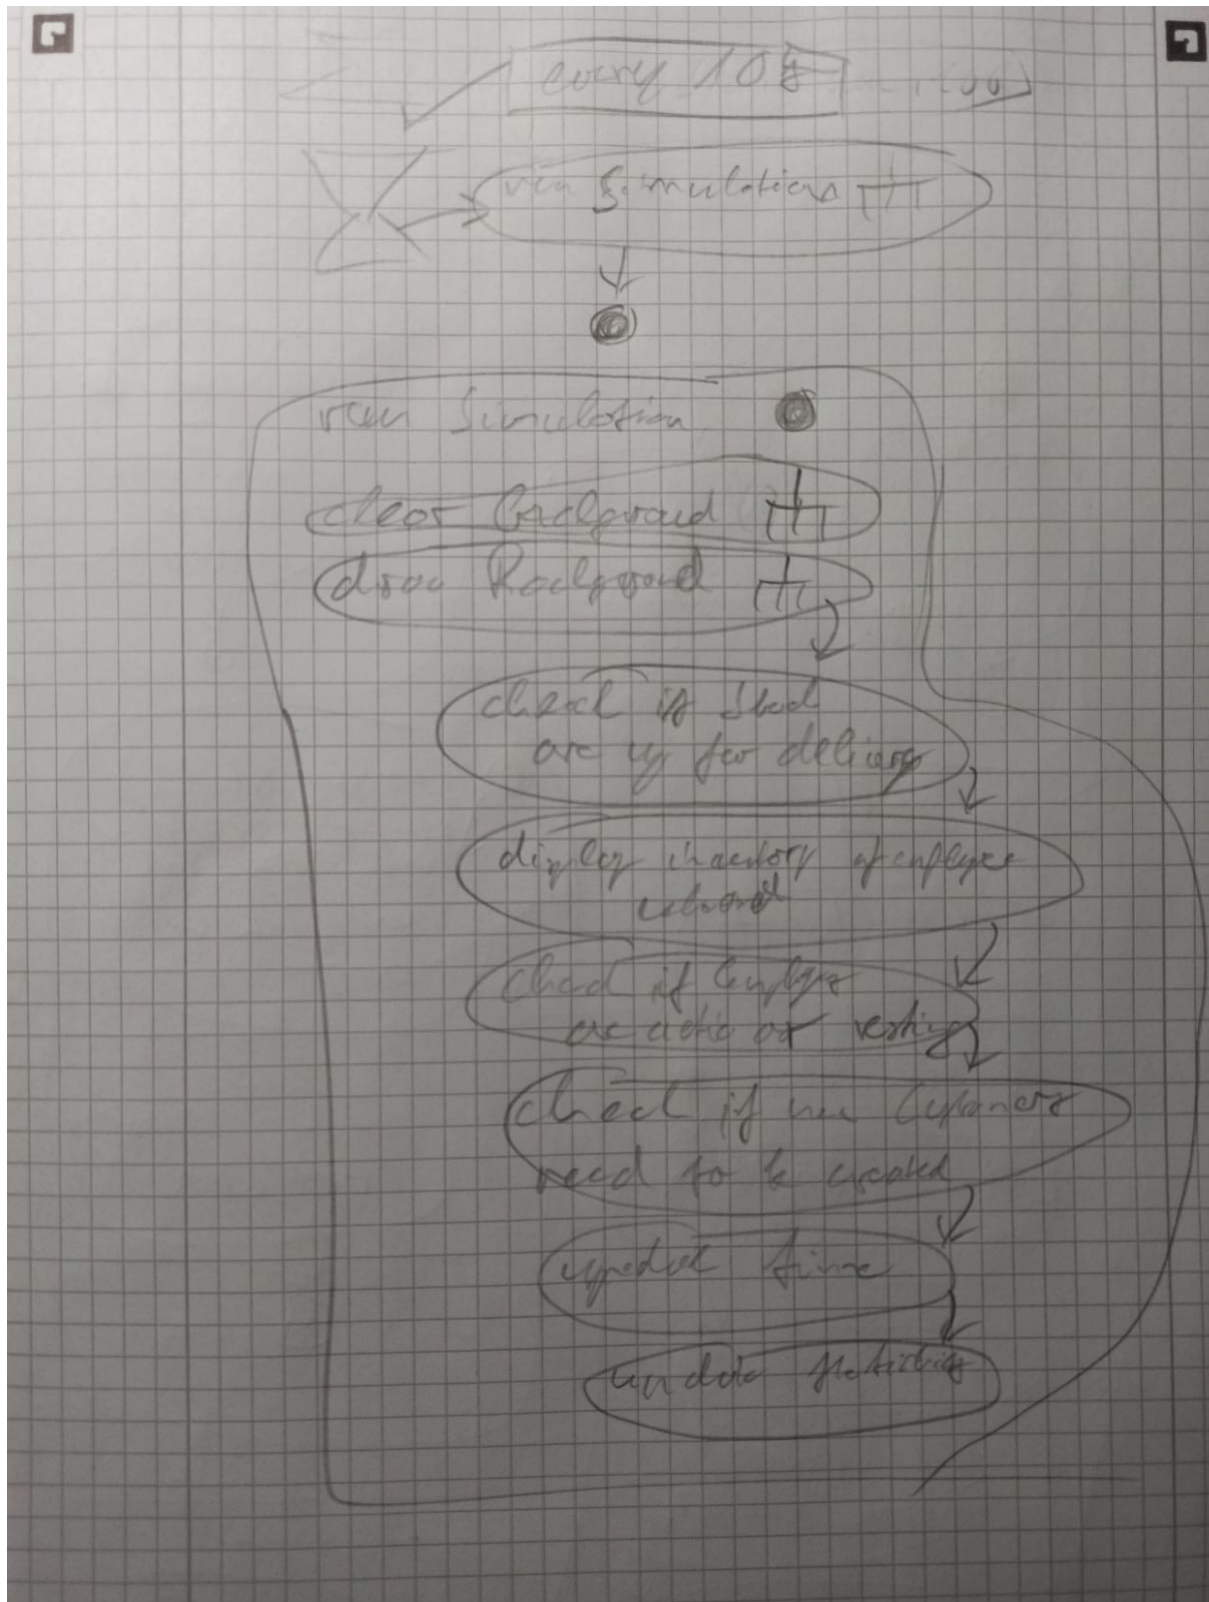 every 10
run Simulation
run Simulation
clear background
draw Background
check if
are up for delivery
display inventory of employee
check if employee
are active or resting
check if new Customers
need to be created
update time
update statistics